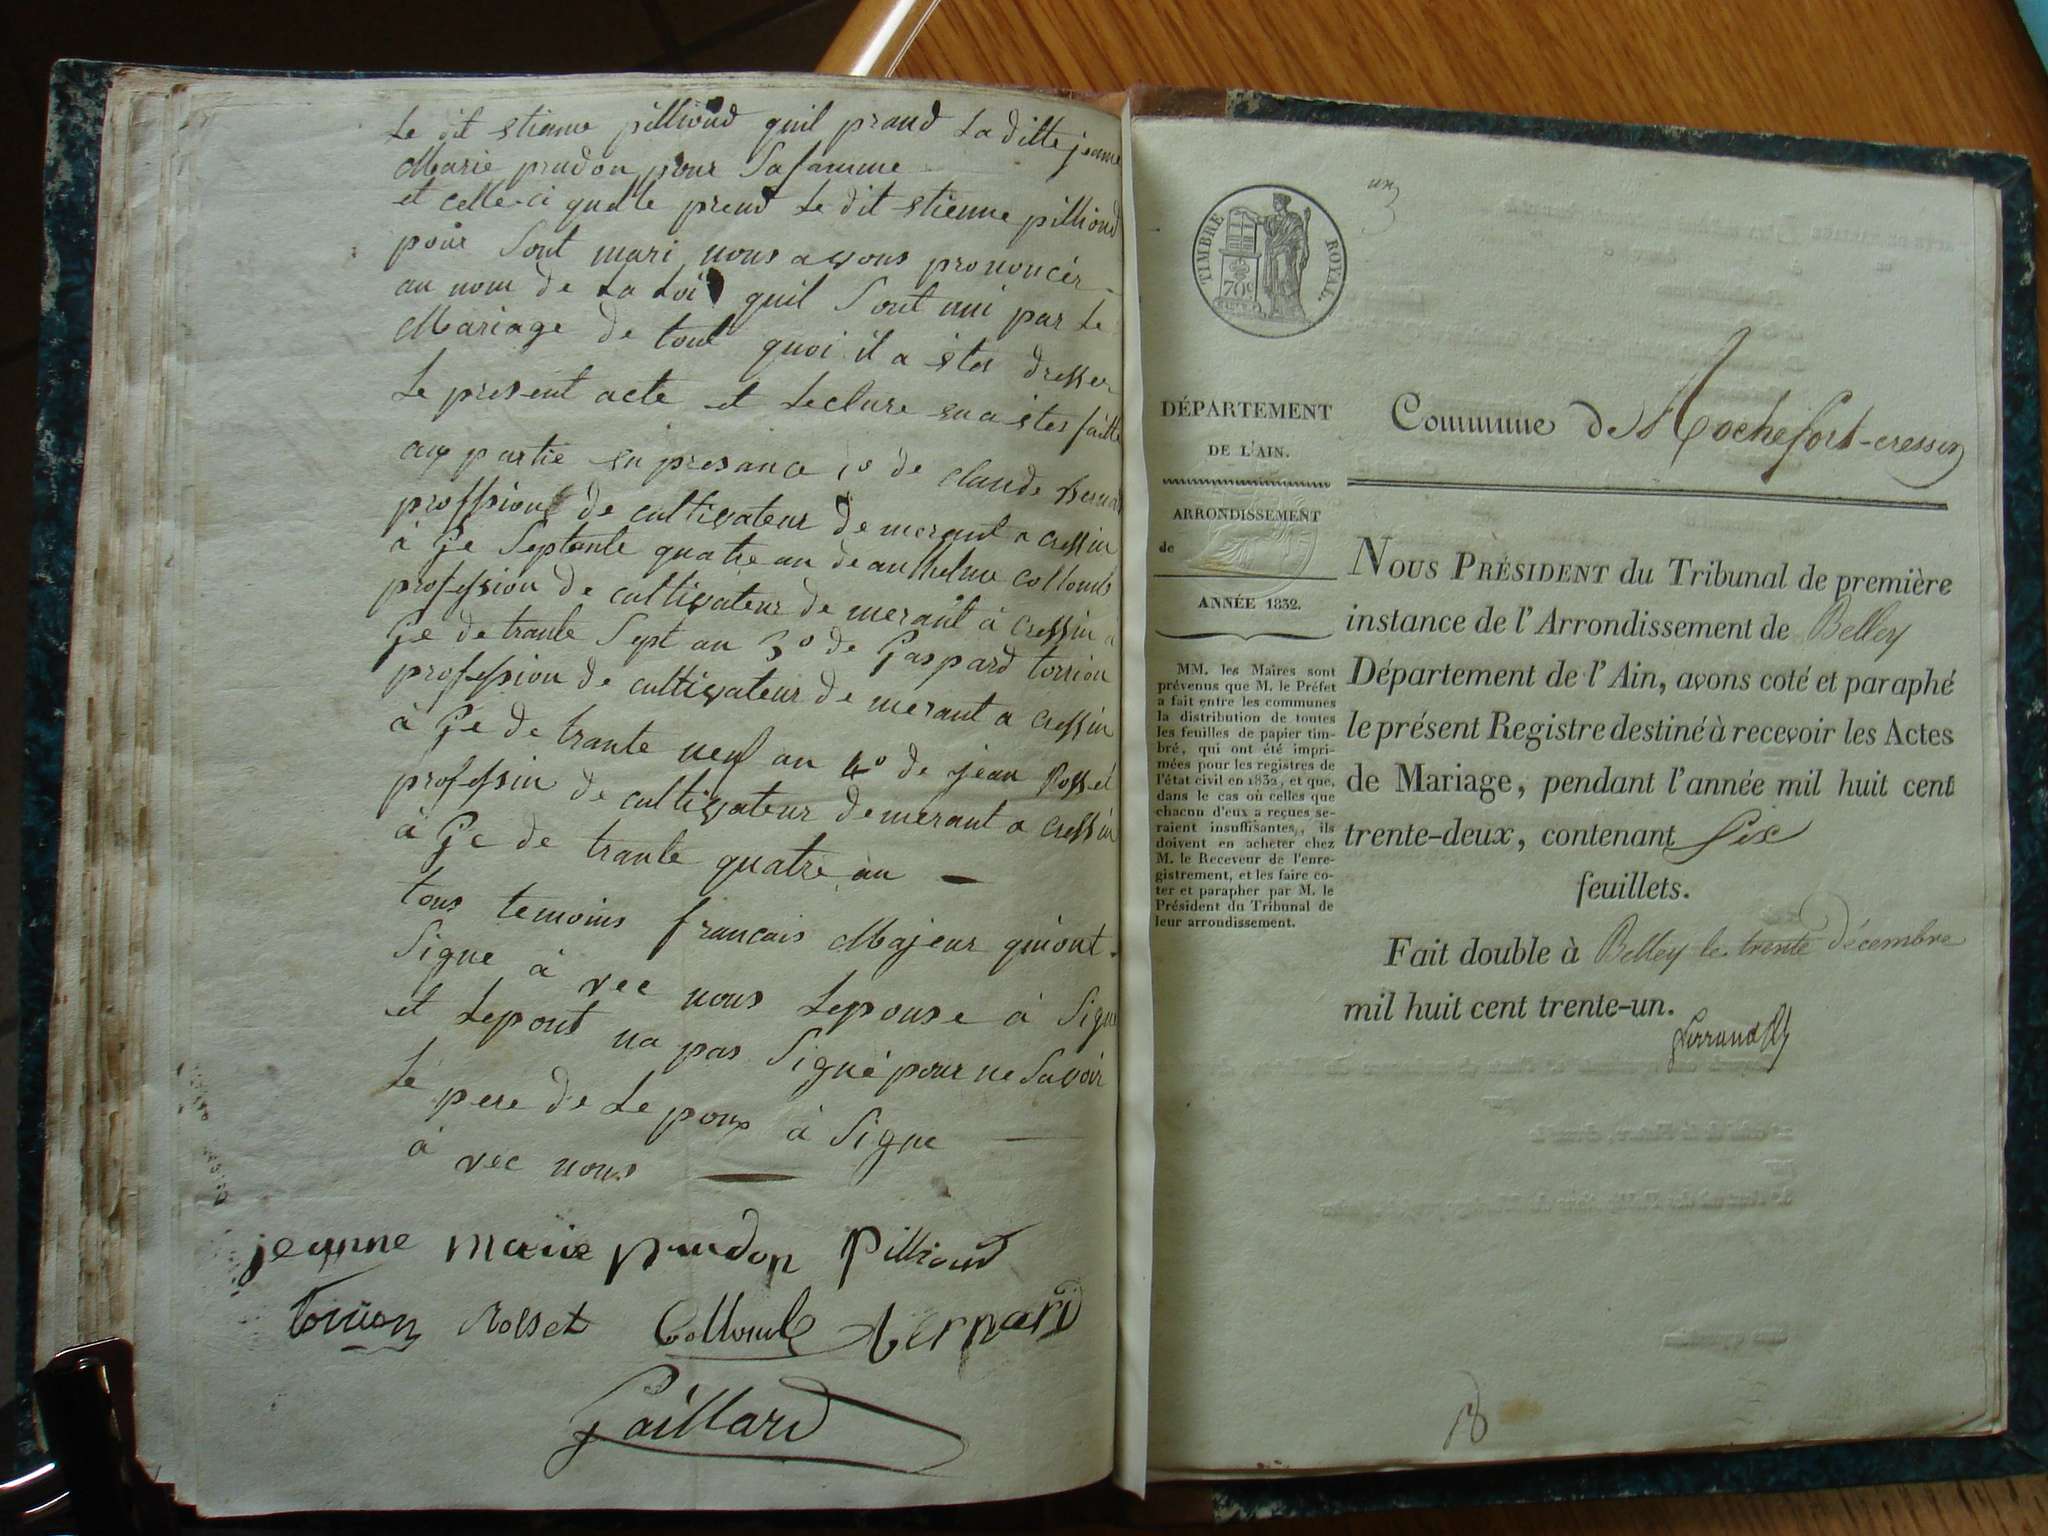 Le dit etienne pilliond quil prand La ditte jeanne
Marie prudon pour Sa famme
et celle-ci quelle prend Le dit etienne pilliond
pour Sont mari nous avons prononcér
au nom de La Loi quil Sont uni par Le
Mariage de tout quoi il a étes dresser
Le present acte et Lecture en a étes faitte
aux partie en presance 1º de claude Bernard
proffsion de cultivateur demerant a cressin
à Ge Septante quatre an de anthelme Collomb
profession de cultivateur de merant à cressin à
Ge de trante Sept an 3º de Gaspard torrion
profession de cultivateur de merant a cressin
à Ge de trante neuf an 4º de jean Rosset
professin de cultivateur demerant a cressin
à Ge de trante quatre an
tous temoins francais Majeur qui ont
Signe à vec nous Lepouse à Signe
et Lepout na pas Signé pour ne Savoir
Le pere de Le poux à Signe
à vec nous
jeanne marie prudon Pilliond
torrion Rosset Collomb bernard
Gaillard
un
TIMBRE ROYAL.
70c
DÉPARTEMENT
DE L'AIN.
ARRONDISSEMENT
de
ANNÉE 1832.
MM. les Maires sont
prévenus que M. le Préfet
a fait entre les communes
la distribution de toutes
les feuilles de papier tim-
bré, qui ont été impri-
mées pour les registres de
l'état civil en 1832, et que,
dans le cas où celles que
chacun d'eux a reçues se-
raient insuffisantes, ils
doivent en acheter chez
M. le Receveur de l'enre-
gistrement, et les faire co-
ter et parapher par M. le
Président du Tribunal de
leur arrondissement.
Commune de Rochefort-cressin
NOUS PRÉSIDENT du Tribunal de première
instance de l'Arrondissement de Belley
Département de l'Ain, avons coté et paraphé
le présent Registre destiné à recevoir les Actes
de Mariage, pendant l'année mil huit cent
trente-deux, contenant Six
feuillets.
Fait double à Belley le trente décembre
mil huit cent trente-un.